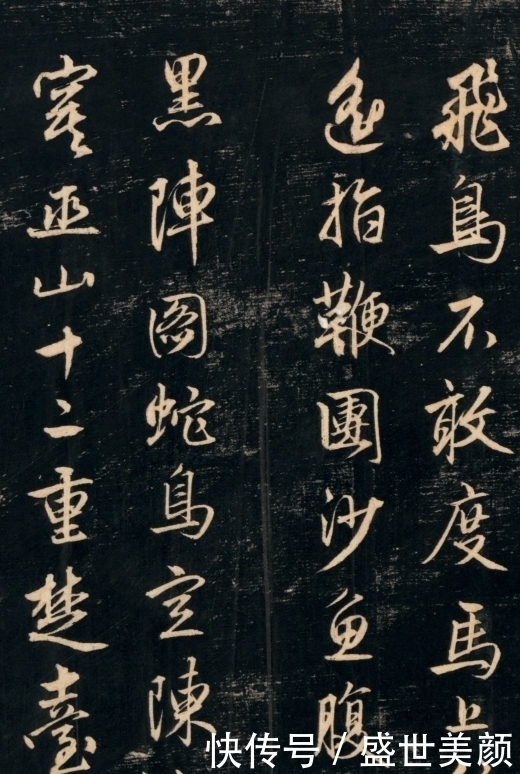 飛鳥不敢度馬上
遙指鞭團沙魚腹
黑陣圖蛇鳥空陳
寒巫山十二重楚臺
快传号 / 盛世美颜